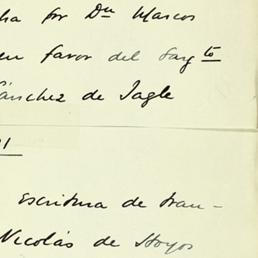 ha por Dn Marcos
en favor del Sargto
Sánchez de Tagle
Escritura de tran-
Nicolás de Hoyos